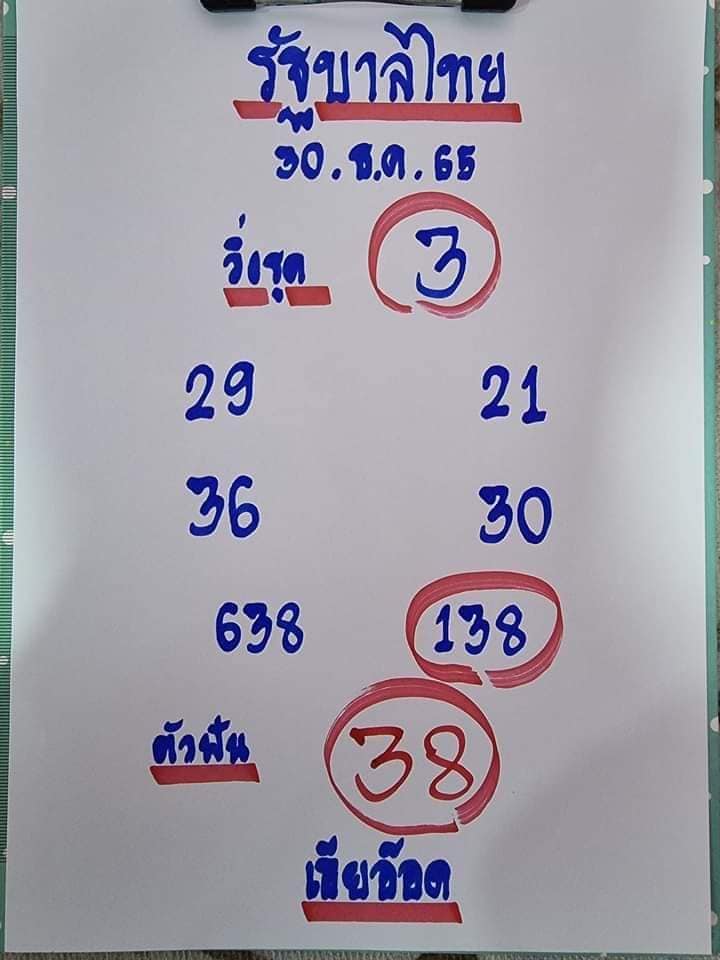 รัฐบาลไทย
30.ธ.ค.65
วิ่งรูด 3
29 21
36 30
638 138
ตัวฟัน 38
เฮียอ๊อด